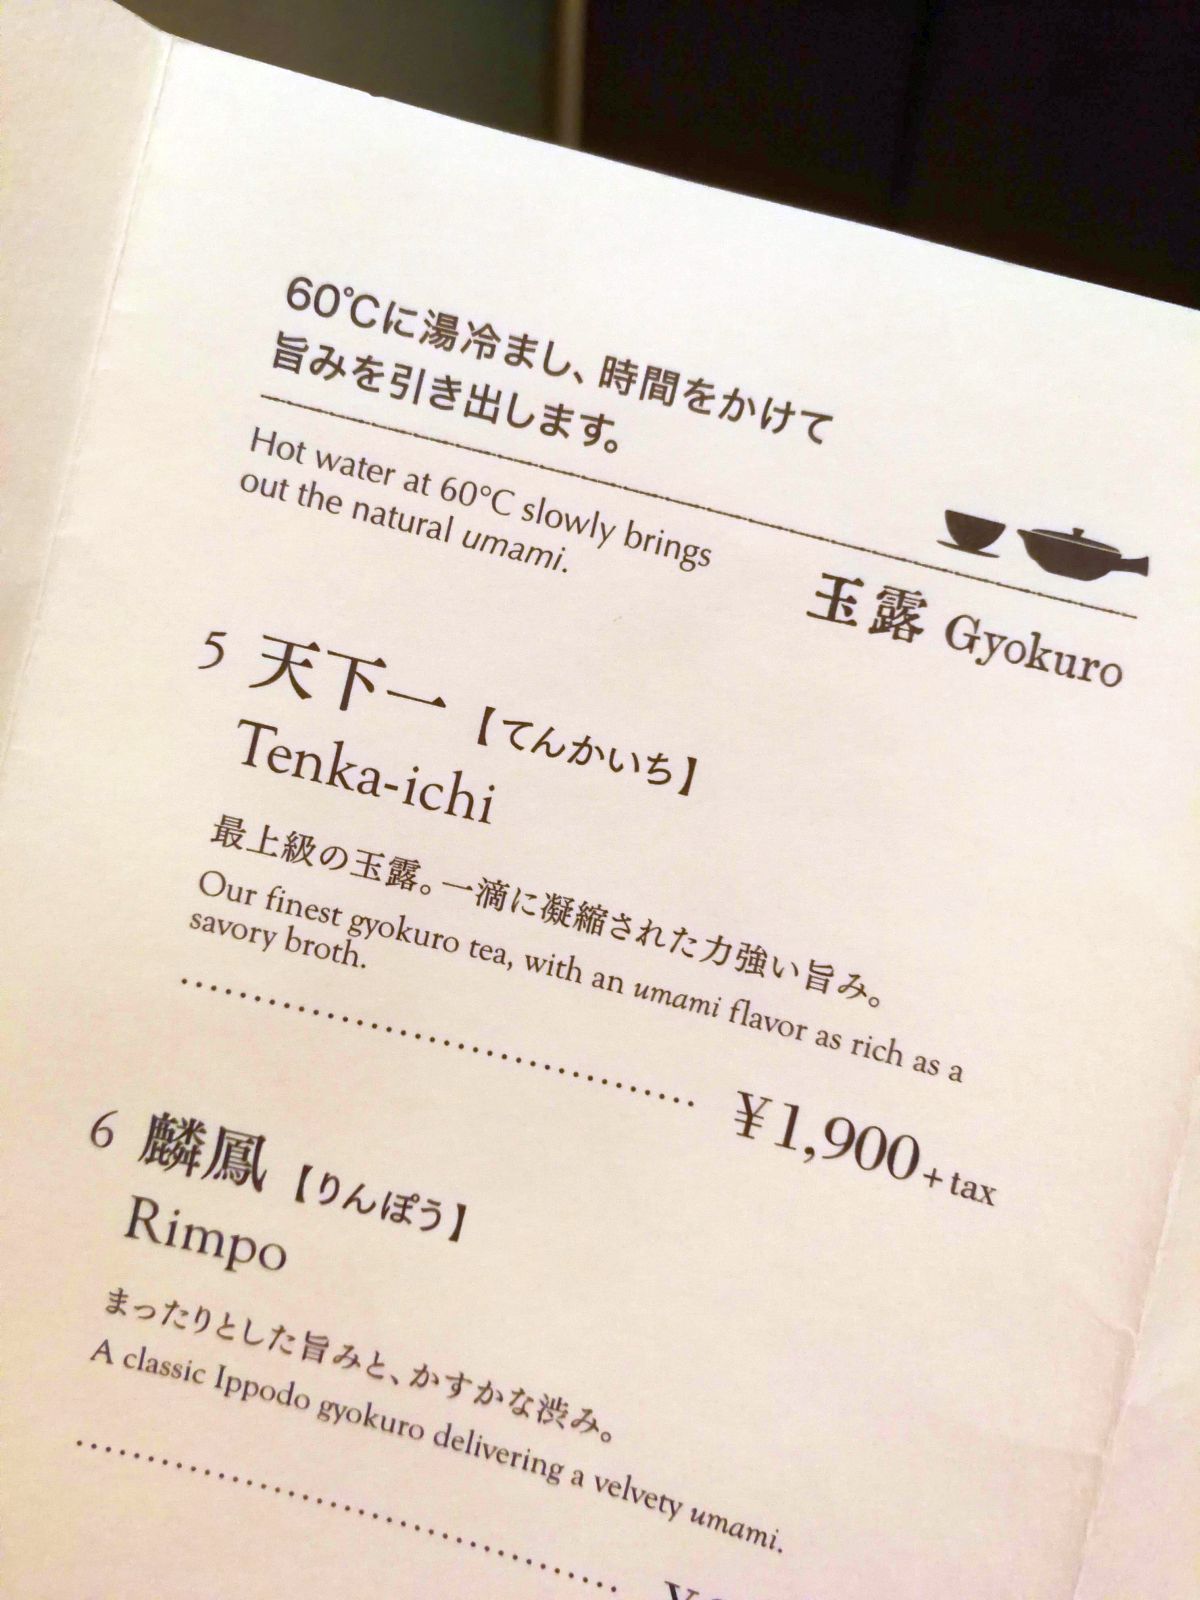 60℃に湯冷まし、時間をかけて
旨みを引き出します。
Hot water at 60°C slowly brings
out the natural umami.
玉露 Gyokuro
5 天下一【てんかいち】
Tenka-ichi
最上級の玉露。一滴に凝縮された力強い旨み。
Our finest gyokuro tea, with an umami flavor as rich as a
savory broth.
¥1,900+tax
6 麟鳳【りんぽう】
Rimpo
まったりとした旨みと、かすかな渋み。
A classic Ippodo gyokuro delivering a velvety umami.